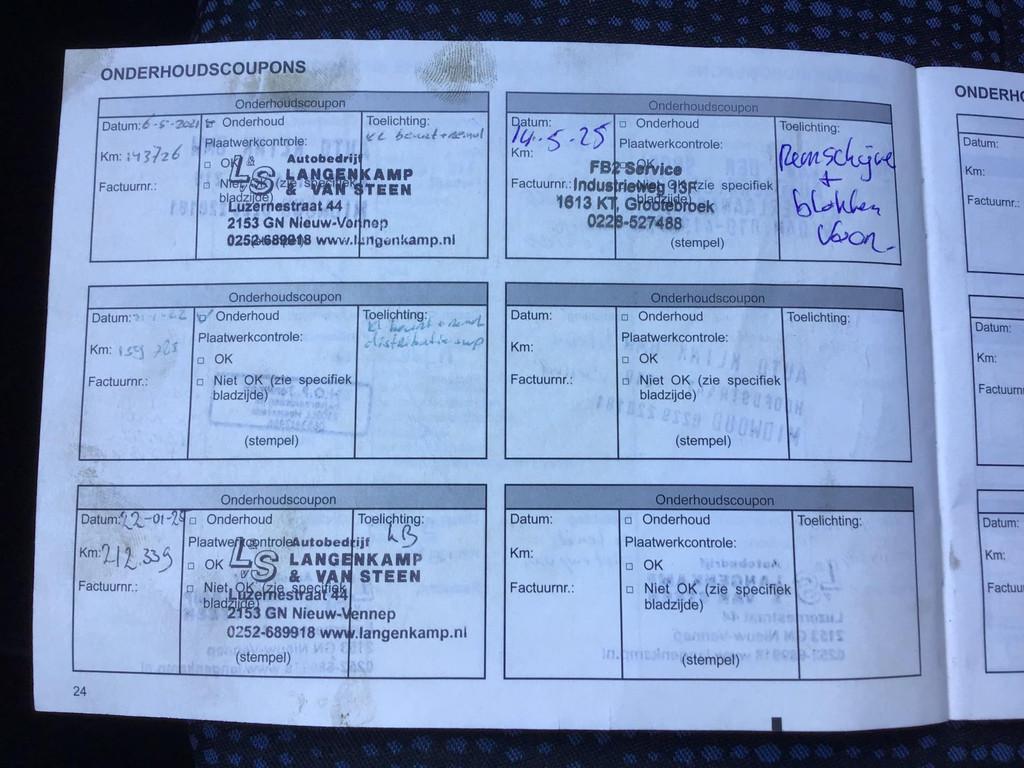 ONDERHOUDSCOUPONS
Onderhoudscoupon
Datum: 6-5-2021
Onderhoud
Toelichting:
kl beurt +
Km: 143726
Plaatwerkcontrole:
OK
Factuurnr.:
Niet OK (zie specifiek
bladzijde)
(stempel)
LS Autobedrijf
LANGENKAMP
& VAN STEEN
Luzernestraat 44
2153 GN Nieuw-Vennep
0252-689918 www.langenkamp.nl
Onderhoudscoupon
Datum:
14-5-25
Onderhoud
Toelichting:
Remschijve
+
blokken
voor
Km:
Plaatwerkcontrole:
OK
Factuurnr.:
Niet OK (zie specifiek
bladzijde)
FB2 Service
Industrieweg 13F
1613 KT, Grootebroek
0228-527488
(stempel)
Onderhoudscoupon
Datum:
Onderhoud
Toelichting:
kl beurt +
distributie + wp
Km: 159 785
Plaatwerkcontrole:
OK
Factuurnr.:
Niet OK (zie specifiek
bladzijde)
(stempel)
Onderhoudscoupon
Datum:
Onderhoud
Toelichting:
Km:
Plaatwerkcontrole:
OK
Factuurnr.:
Niet OK (zie specifiek
bladzijde)
(stempel)
Onderhoudscoupon
Datum: 22-01-25
Onderhoud
Toelichting:
KB
Km: 212.339
Plaatwerkcontrole:
OK
Factuurnr.:
Niet OK (zie specifiek
bladzijde)
LS Autobedrijf
LANGENKAMP
& VAN STEEN
Luzernestraat 44
2153 GN Nieuw-Vennep
0252-689918 www.langenkamp.nl
(stempel)
Onderhoudscoupon
Datum:
Onderhoud
Toelichting:
Km:
Plaatwerkcontrole:
OK
Factuurnr.:
Niet OK (zie specifiek
bladzijde)
(stempel)
24
ONDERH
Datum:
Km:
Factuurnr.:
Datum:
Km:
Factuurn
Datum:
Km:
Factuu